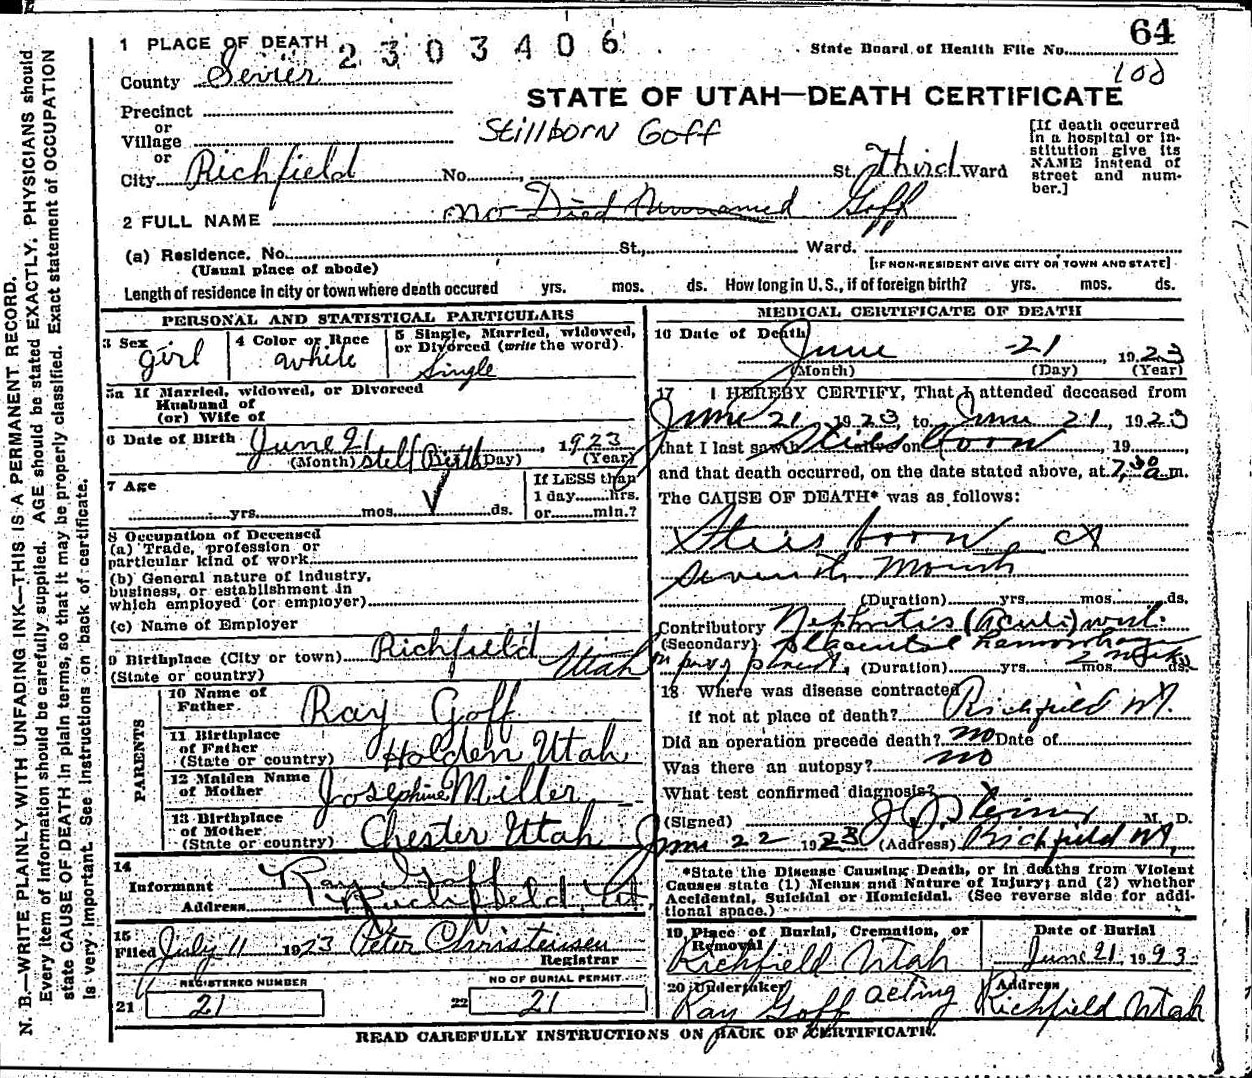 64
State Board of Health File No.
100
1 PLACE OF DEATH 2303406
County Sevier
STATE OF UTAH—DEATH CERTIFICATE
Precinct
or
Village
Stillborn Goff
or
City Richfield No. St. Third Ward
[If death occurred in a hospital or institution give its NAME instead of street and number.]
2 FULL NAME no Died Unnamed Goff
(a) Residence. No. St., Ward.
(Usual place of abode) [IF NON-RESIDENT GIVE CITY OR TOWN AND STATE]
Length of residence in city or town where death occured yrs. mos. ds. How long in U. S., if of foreign birth? yrs. mos. ds.
PERSONAL AND STATISTICAL PARTICULARS
3 Sex girl
4 Color or Race white
5 Single, Married, widowed, or Divorced (write the word). Single
5a If Married, widowed, or Divorced
Husband of
(or) Wife of
6 Date of Birth June 21, 1923
(Month) still Birth (Day) (Year)
7 Age
yrs. mos. ds.
If LESS than
1 day hrs.
or min.?
8 Occupation of Deceased
(a) Trade, profession or
particular kind of work
(b) General nature of industry,
business, or establishment in
which employed (or employer)
(c) Name of Employer
9 Birthplace (City or town) Richfield
(State or country) Utah
PARENTS
10 Name of
Father Ray Goff
11 Birthplace
of Father
(State or country) Holden Utah
12 Maiden Name
of Mother Josephine Miller
13 Birthplace
of Mother
(State or country) Chester Utah
14
Informant Ray Goff
Address Richfield, Ut.
15
Filed July 11 1923 Peter Christensen
Registrar
REGISTERED NUMBER
21 21
NO OF BURIAL PERMIT
22 21
MEDICAL CERTIFICATE OF DEATH
16 Date of Death June 21, 1923
(Month) (Day) (Year)
17 I HEREBY CERTIFY, That I attended deceased from
June 21 1923, to June 21, 1923
that I last saw h alive on 19
and that death occurred, on the date stated above, at 7,30 a m.
The CAUSE OF DEATH* was as follows:
Still born at
Seventh Month
(Duration) yrs. mos. ds.
Contributory Nephritis (Acute) with
(Secondary) placental hemorrhage
(Duration) yrs. mos. ds.
18 Where was disease contracted
if not at place of death? Richfield Ut.
Did an operation precede death? no Date of
Was there an autopsy? no
What test confirmed diagnosis?
(Signed) M. D.
June 22 1923 (Address) Richfield Ut,
*State the Disease Causing Death, or in deaths from Violent
Causes state (1) Menus and Nature of Injury; and (2) whether
Accidental, Suicidal or Homicidal. (See reverse side for additional space.)
19 Place of Burial, Cremation, or
Removal
Richfield Utah
Date of Burial
June 21, 1923
20 Undertaker
Ray Goff acting
Address
Richfield Utah
READ CAREFULLY INSTRUCTIONS ON BACK OF CERTIFICATE.
N. B.—WRITE PLAINLY WITH UNFADING INK—THIS IS A PERMANENT RECORD.
Every item of information should be carefully supplied. AGE should be stated EXACTLY. PHYSICIANS should
state CAUSE OF DEATH in plain terms, so that it may be properly classified. Exact statement of OCCUPATION
is very important. See instructions on back of certificate.